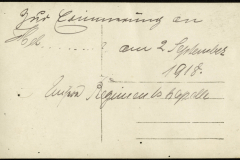 Zur Erinnerung an
am 2 September
1918.
Regiments Kapelle